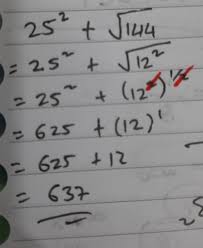 25² + √144
= 25² + √12²
= 25² + (12²)^1/2
= 625 + (12)¹
= 625 + 12
= 637